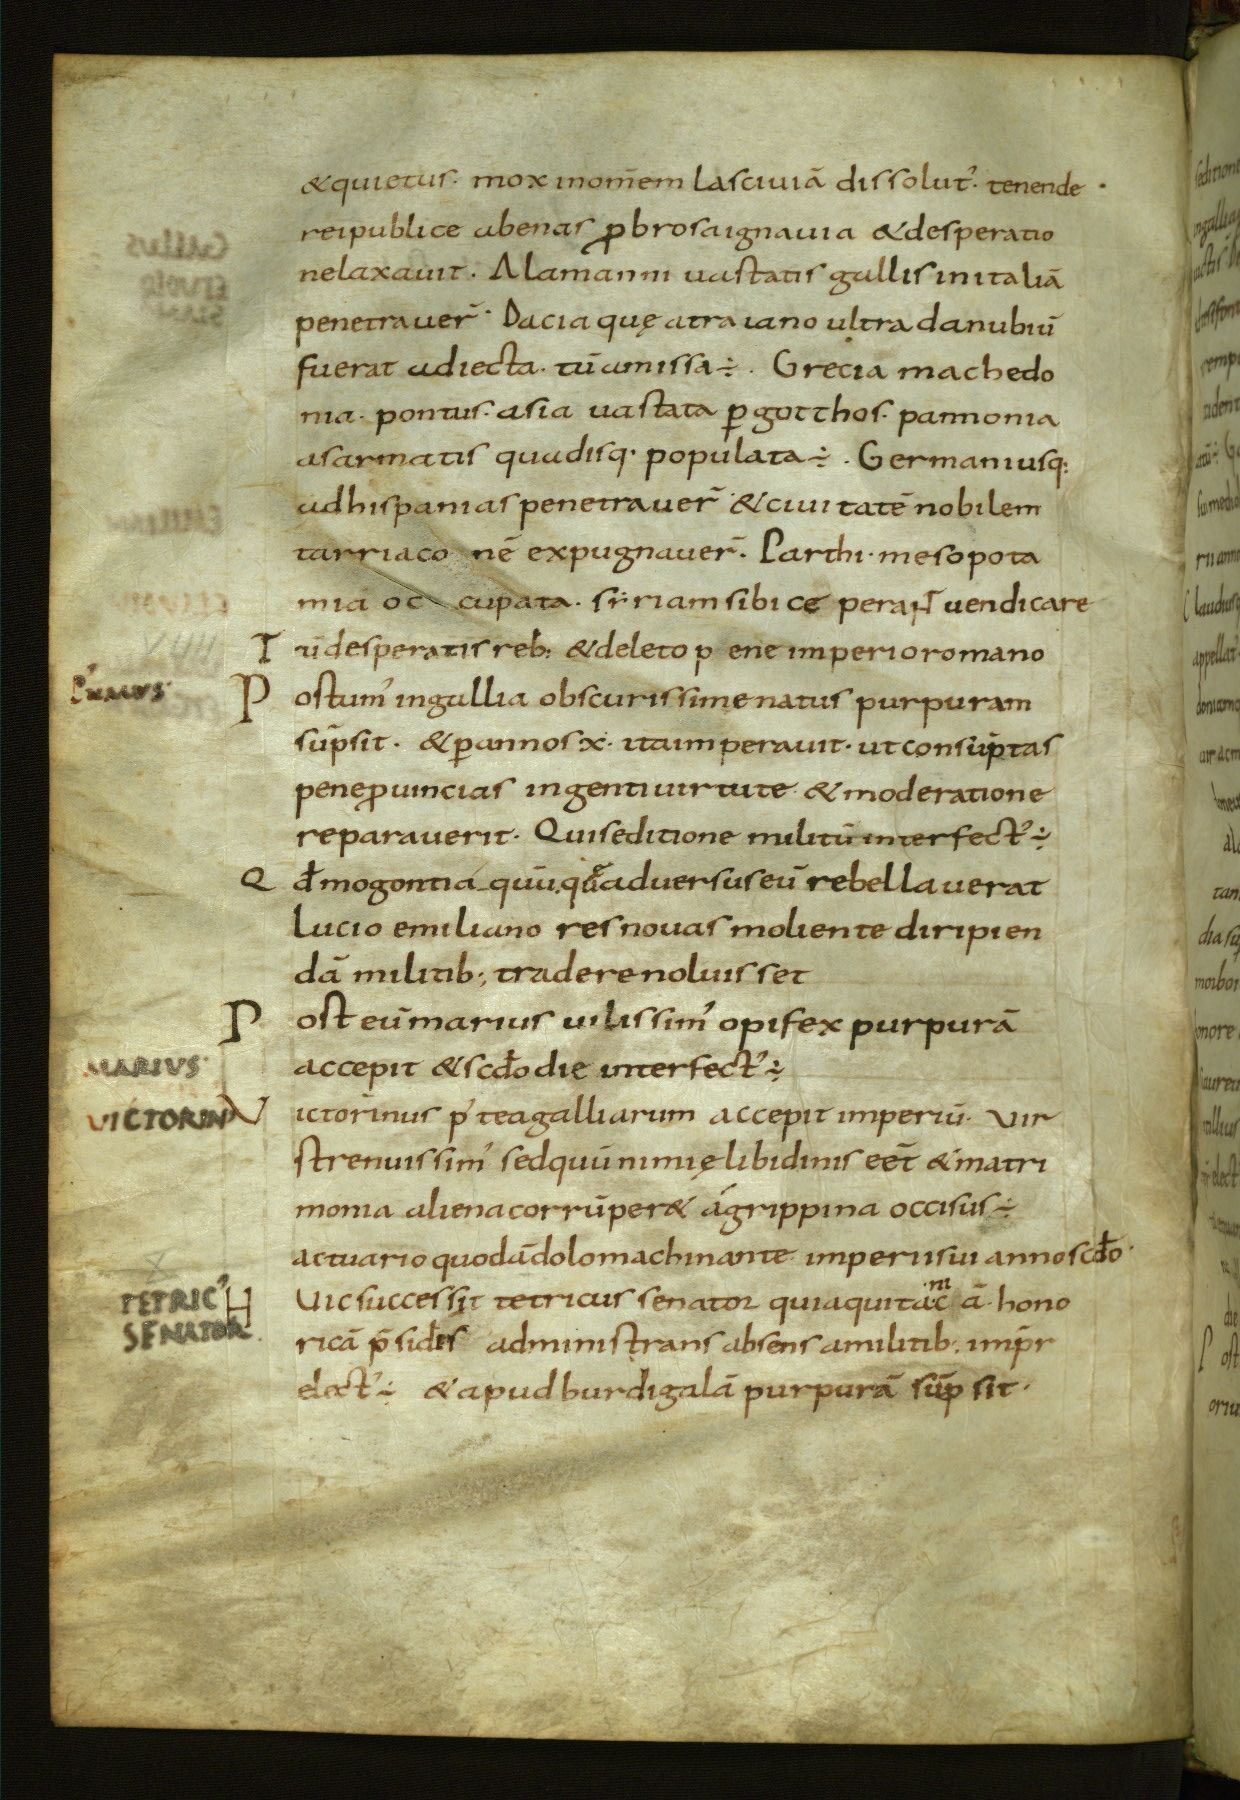 &quietus· mox inom̄em lasciuiā dissolut᾽· tenende ·
reipublice abenas ꝓbrosaignauia &desperatio
nelaxauit· Alamanni uastatis gallis initaliā
penetrauer̄· Dacia quę atraiano ultra danubiū
fuerat adiecta· tū amissa÷· Grecia machedo
nia· pontus· asia uastata ꝑ gotthos· pannonia
asarmatis quadisq· populata÷· Germani usq:
adhispanias penetrauer̄ &ciuitatē nobilem
tarriaco nē expugnauer̄· Parthi· mesopota
mia oc cupata· siriam sibi ce perant uendicare
T ū desperatis reb: &deleto p ene imperio romano
P᾽tumius·
P ostum᾽ ingallia obscurissime natus purpuram
sūpsit· &ꝑannos x· ita imperauit· ut consūptas
pene ꝓuincias ingenti uirtute &moderatione
reparauerit· Qui seditione militū interfect᾽÷
Q đ mogontia quū quę aduersus eū rebellauerat
Lucio emiliano res nouas moliente diripien
dā militib; tradere noluisset
P ost eū marius uilissim᾽ opifex purpurā
MARIVS·
accepit &scđo die interfect᾽÷
VICTORIN᾽
V ictorinus p᾽ tea galliarum accepit imperiū· Vir
strenuissim᾽ sed quū nimię libidinis eēt &matri
monia aliena corrūper& agrippina occisus÷
actuario quodā dolo machinante imperii sui anno scđo·
TETRIC᾽
SENATOR
H Uic successit tetricus senator qui aquitacm ā· hono
ricā p̄sidis administrans absens a militib; imp̄r
elect᾽÷ &apud burdigalā purpurā sūp sit·